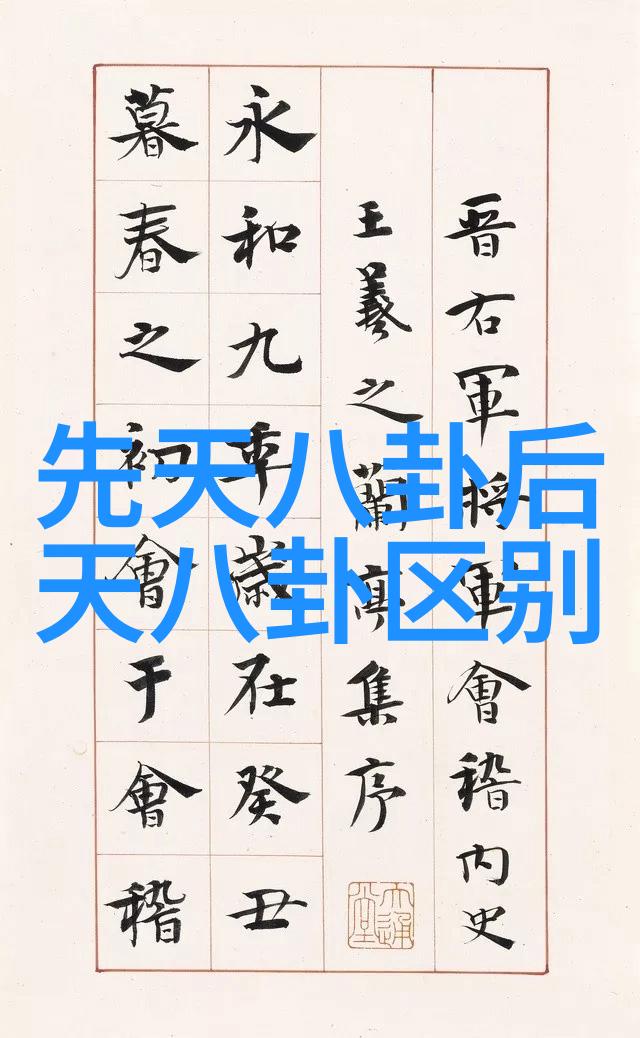 先天八卦后
天八卦区别
晋右軍将軍會稽内史
王羲之蘭亭集序
永和九年歲在癸丑
暮春之初會于會稽